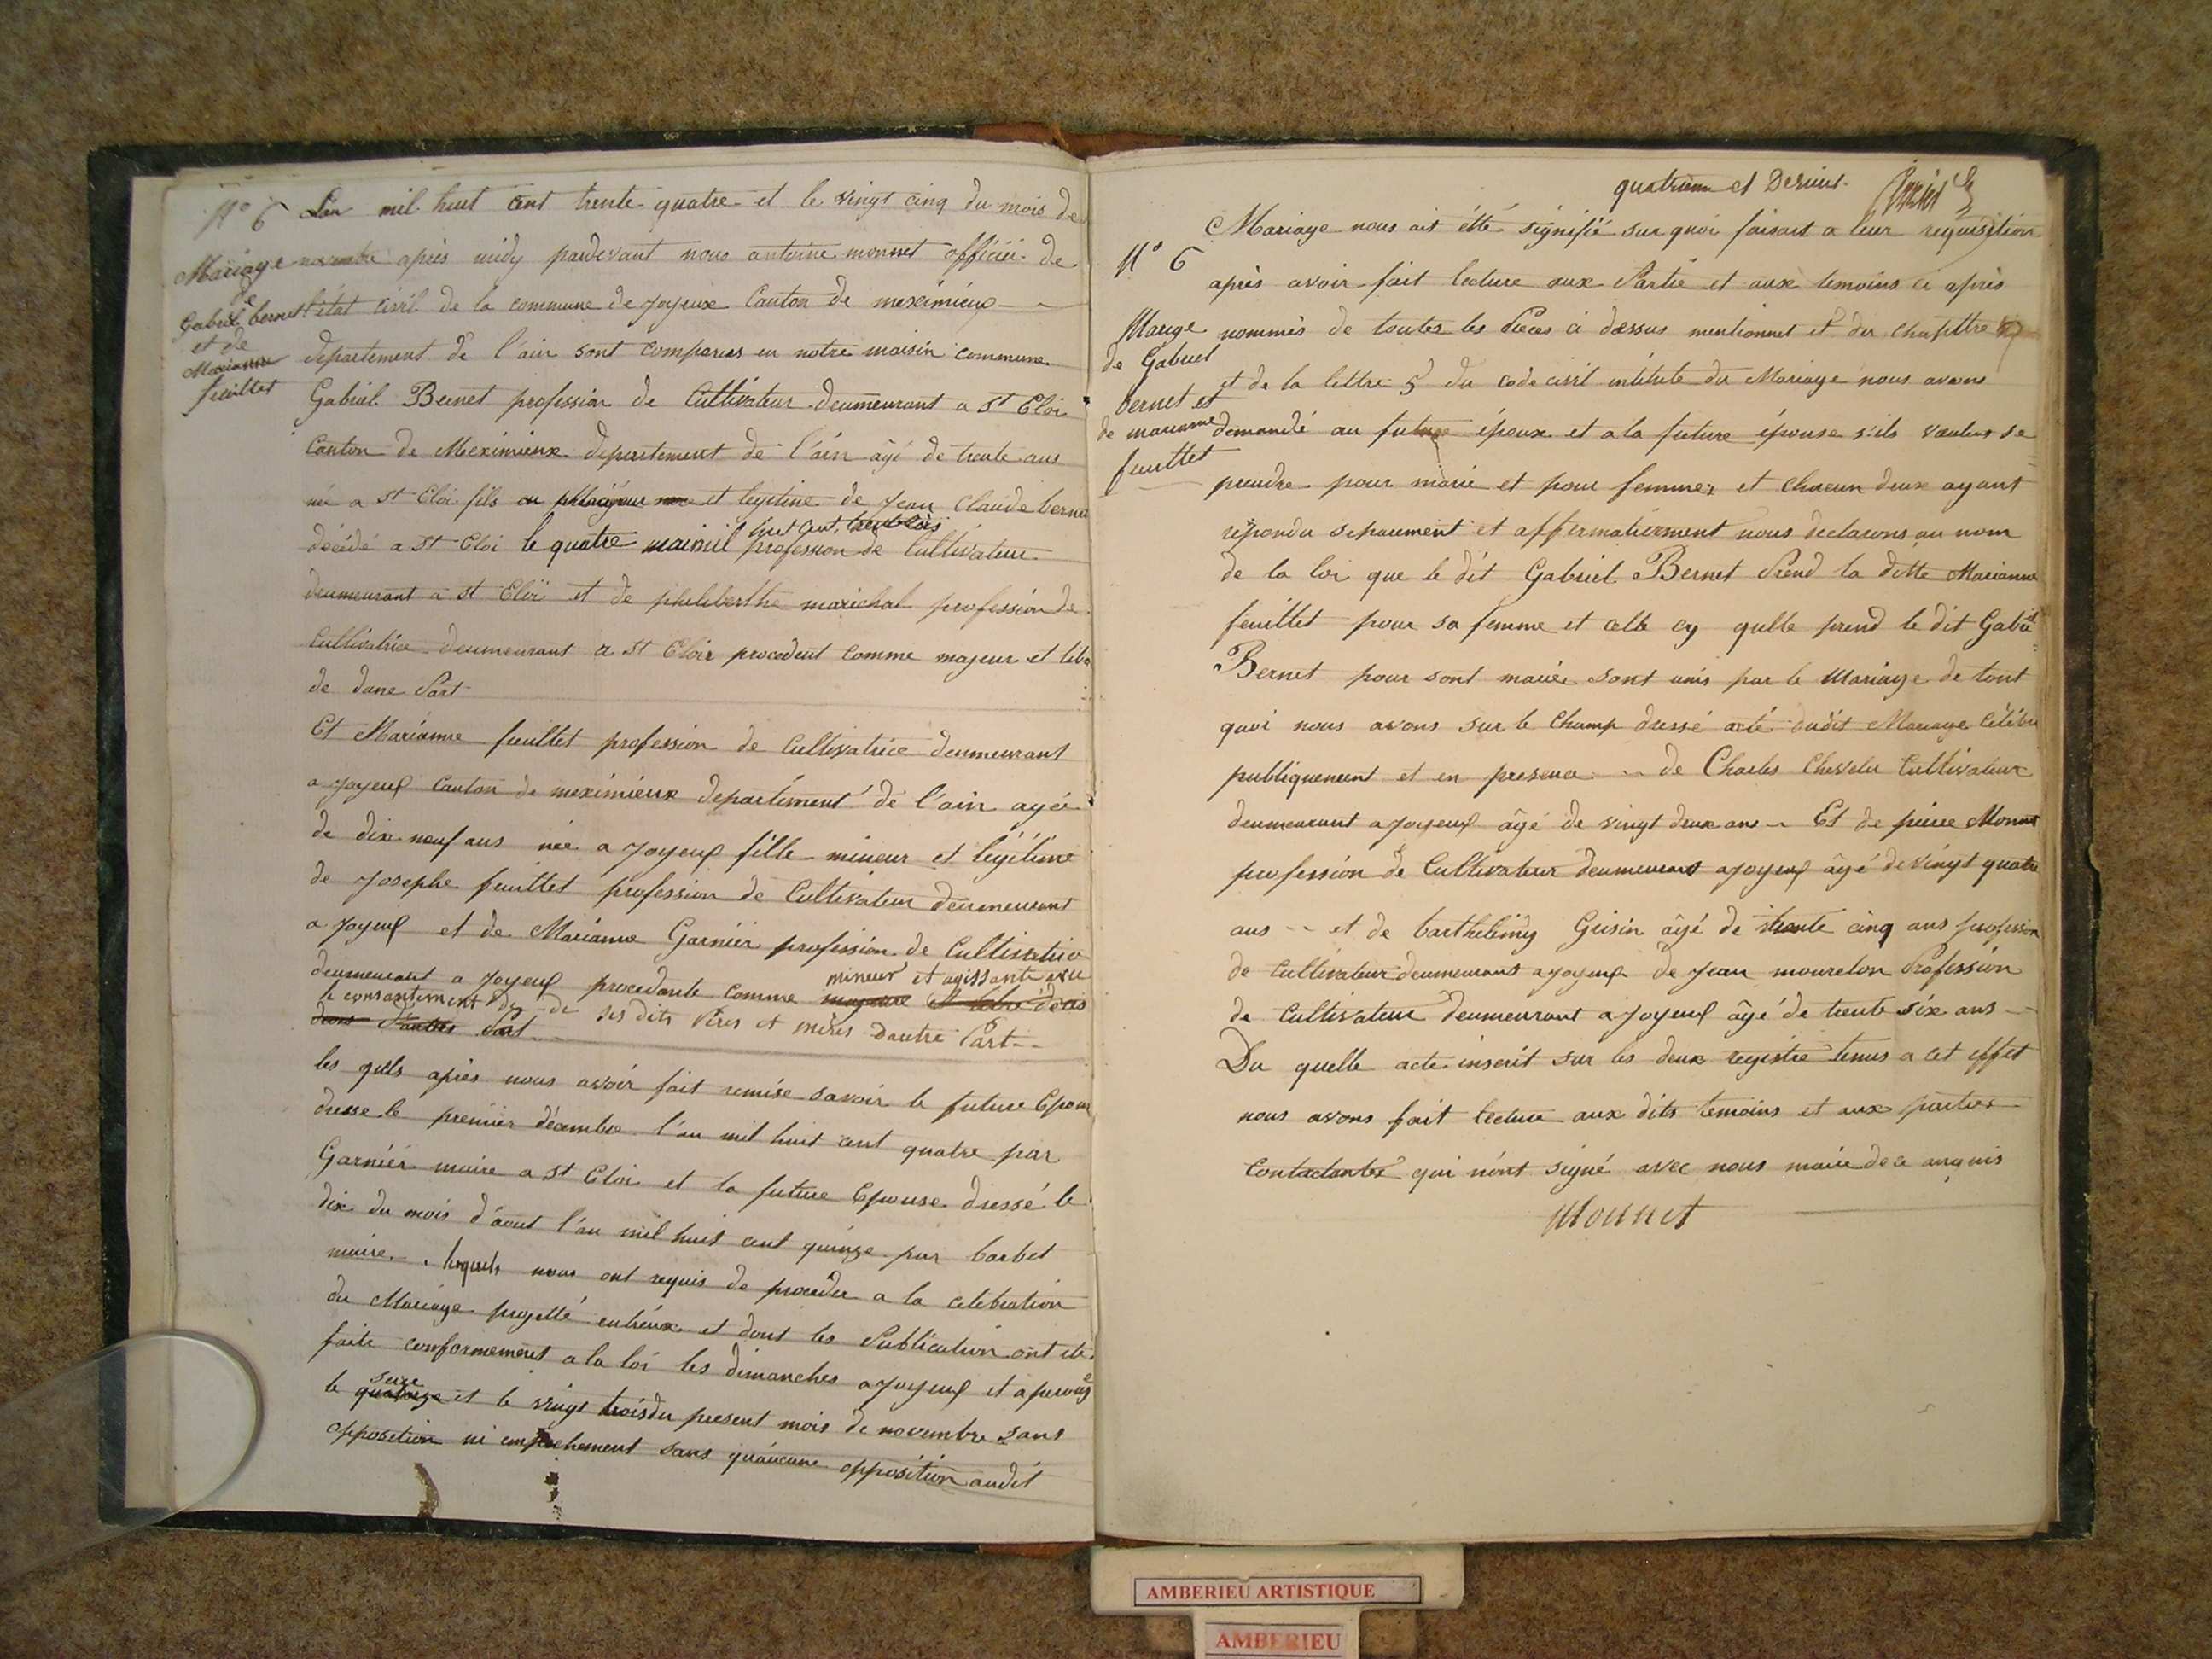 N° 6
Mariage
de
Gabriel bernet
et de
Marianne
feuillet
L'an mil huit cent trente quatre et le vingt cinq du mois de
novembre après midy pardevant nous antoine monnet officier de
l'état civil de la commune de joyeux Canton de meximieux
departement de l'ain sont comparus en notre maisin commune
Gabriel Bernet profession de Cultivateur deumeurant a St Eloi
Canton de Meximieux departement de l'ain âgé de trente ans
né a St Eloi fils et legitine de jean Claude bernet
décédé a St Eloi le quatre mai mil huit cent trente trois profession de Cultivateur
deumeurant a St Eloi et de philiberthe marichal profession de
Cultivatrice deumeurant a St Eloir procedent comme majeur et libre
de dune Part
Et Marianne feuillet profession de Cultivatrice deumeurant
a joyeux Canton de meximieux departement de l'ain agée
de dix neuf ans née a joyeux fille mineur et légitime
de josephe feuillet profession de Cultivateur deumeurant
a joyeux et de Marianne Garniér profession de Cultivatrice
mineur et agissante
deumeurant a joyeux procedante comme majeure et libre
le consantiment de de ses dits Péres et mères Dautre Part
d'autre Part
les quels après nous avoir fait remise savoir le future Epoux
dresse le premier décembre l'an mil huit cent quatre par
Garnier maire a St Eloi et la future Epouse dressé le
dix du mois d'aout l'an mil huit cent quinze par barbet
maire. lesquels nous ont requis de proceder a la celebration
du Mariage projetté entréux et dont les Publication ont ete
faite conformement a la loi les dimanches a joyeux et a perouges
seize
le quatorze et le vingt trois du present mois de novembre sans
opposition ni empechement sans quáucune opposition audit
quatrieme et Dernier
N° 6
Mariage
de Gabriel
bernet et
de marianne
feuillet
Mariage nous ait étté signifié sur quoi faisant a leur requisition
après avoir fait lecture aux Partie et aux temoins ci après
nommés de toutes les Pieces ci dessus mentionnet et du chapittre
et de la lettre 5 du code civil intitule du Mariage nous avons
demandé au future époux et a la future épouse s'ils veulent se
prendre pour marie et pour femmes et chacun deux ayant
repondu separement et affirmativement nous declarons au nom
de la loi que le dit Gabriel Bernet Prend la ditte Marianne
feuillet pour sa femme et celle cy qulle prend le dit Gabriel
Bernet pour sont mariée sont unis par le Mariage de tout
quoi nous avons sur le champ dressé acté dudit Mariage célébre
publiquement et en presence de Charles Chevelu Cultivateur
deumeurant a joyeux âgé de vingt deux ans Et de piérre Monnet
profession de Cultivateur deumeurant a joyeux âgé de vingt quatre
ans et de barthelémy Grisin âgé de trente cinq ans profession
de Cultivateur deumeurant a joyeux de jean mourelon Profession
de Cultivateur deumeurant a joyeux âgé de trente six ans
Du quelle acte inscrit sur les deux registre tenus a cet effet
nous avons fait lecture aux dits temoins et aux parties
Contractantes qui n'ont signé avec nous maire de ce anquis
Monnet
AMBERIEU ARTISTIQUE
AMBERIEU